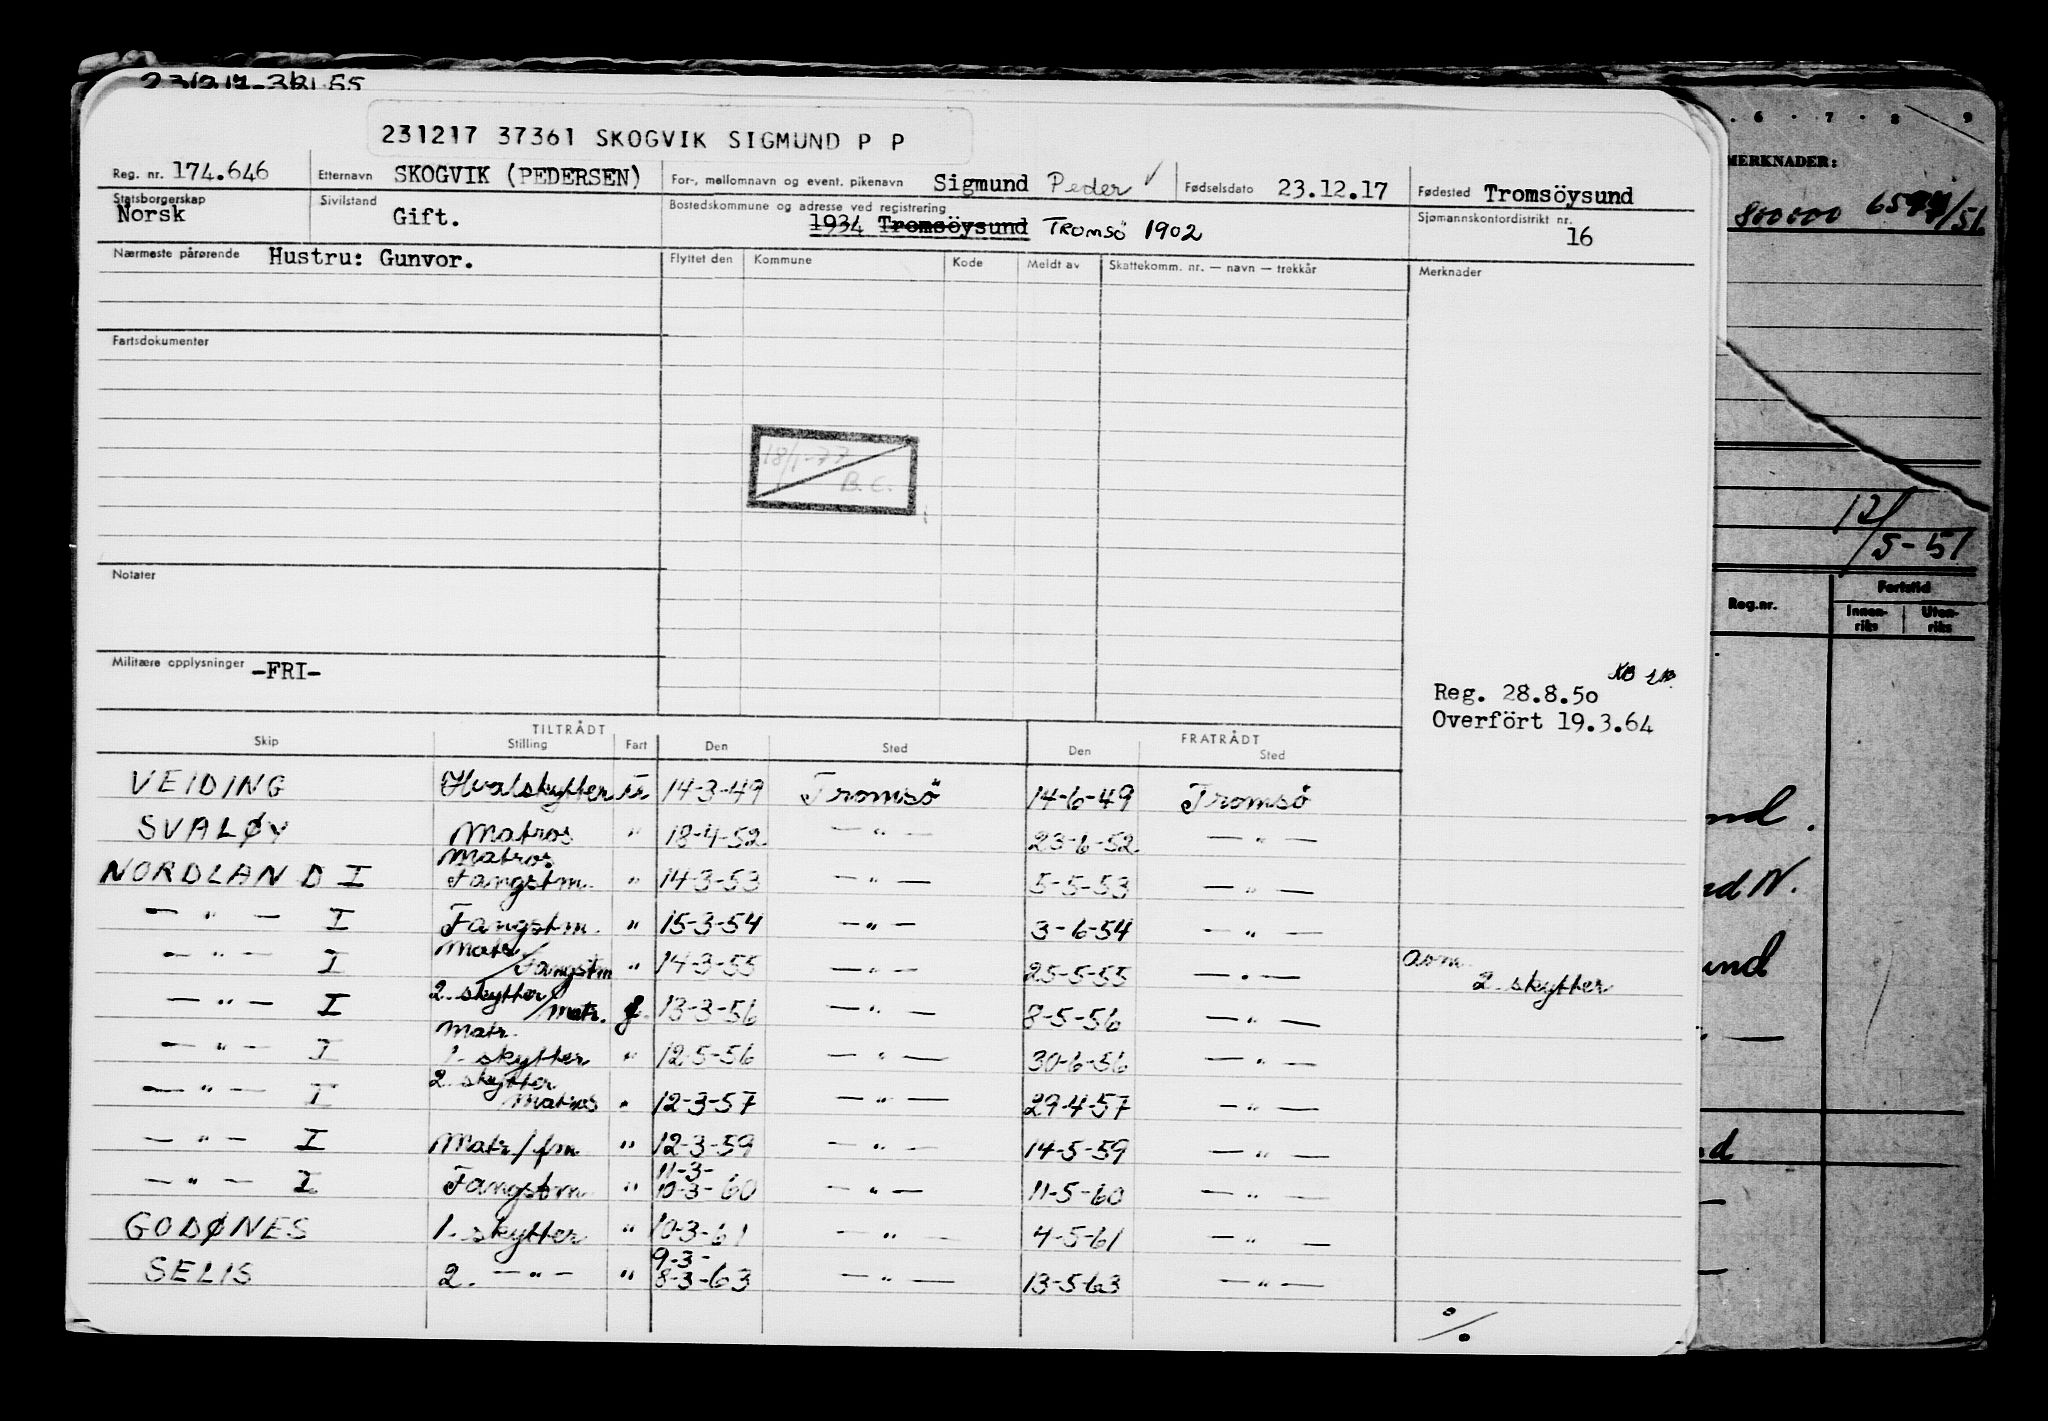 231217 37361 SKOGVIK SIGMUND P P
Reg. nr. 174.646 Etternavn SKOGVIK (PEDERSEN) For-, mellomnavn og event. pikenavn Sigmund Peder Fødselsdato 23.12.17 Fødested Tromsöysund
Statsborgerskap Norsk Sivilstand Gift. Bostedskommune og adresse ved registrering 1934 Tromsöysund TROMSÖ 1902 Sjømannskontordistrikt nr. 16
Nærmeste pårørende Hustru: Gunvor. Flyttet den Kommune Kode Meldt av Skattekomm. nr. — navn — trekkår Merknader
Fartsdokumenter
18/1-77
B.C.
Notater
Militære opplysninger -FRI-
Reg. 28.8.50
Overfört 19.3.64
TILTRÅDT FRATRÅDT
Skip Stilling Fart Den Sted Den Sted
VEIDING Hvalskytter 14-3-49 Tromsö 14-6-49 Tromsö
SVALØY Matros " 18-4-52 — " — 23-6-52 — " —
NORDLAND I Matros Fangstm. " 14-3-53 — " — 5-5-53 — " —
— " — I Fangstm. " 15-3-54 — " — 3-6-54 — " —
— " — I Matr/Fangstm " 14-3-55 — " — 25-5-55 — " — 2. skytter
— " — I 2. skytter/matr. 13-3-56 — " — 8-5-56 — " —
— " — I Matr. 1. skytter " 12-5-56 — " — 30-6-56 — " —
— " — I 2. skytter Matros " 12-3-57 — " — 29-4-57 — " —
— " — I Matr/fm " 12-3-59 — " — 14-5-59 — " —
— " — I Fangstm. " 11-3- 10-3-60 — " — 11-5-60 — " —
GODØNES 1. skytter " 10-3-61 " — 4-5-61 — " —
SELIS 2. — " — " 9-3- 8-3-63 — " — 13-5-63 — " —
6 · 7 · 8 9
MERKNADER:
800000
12/5-51
Reg.nr. Fartstid
Innen-riks Uten-riks